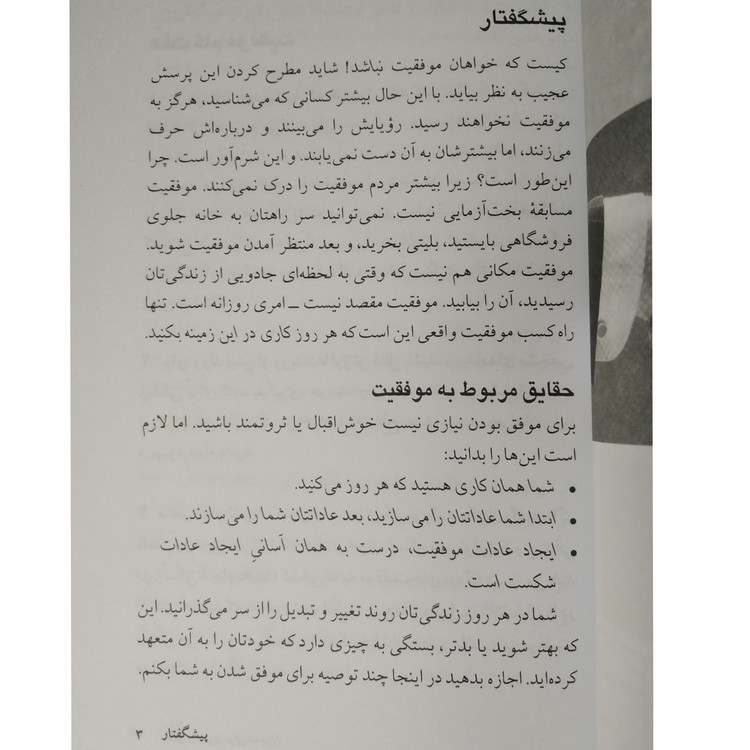 پیشگفتار
کیست که خواهان موفقیت نباشد! شاید مطرح کردن این پرسش
عجیب به نظر بیاید. با این حال بیشتر کسانی که می‌شناسید، هرگز به
موفقیت نخواهند رسید. رؤیایش را می‌بینند و درباره‌اش حرف
می‌زنند، اما بیشترشان به آن دست نمی‌یابند. و این شرم‌آور است. چرا
این‌طور است؟ زیرا بیشتر مردم موفقیت را درک نمی‌کنند. موفقیت
مسابقهٔ بخت‌آزمایی نیست. نمی‌توانید سر راهتان به خانه جلوی
فروشگاهی بایستید، بلیتی بخرید، و بعد منتظر آمدن موفقیت شوید.
موفقیت مکانی هم نیست که وقتی به لحظه‌ای جادویی از زندگی‌تان
رسیدید، آن را بیابید. موفقیت مقصد نیست ــ امری روزانه است. تنها
راه کسب موفقیت واقعی این است که هر روز کاری در این زمینه بکنید.
حقایق مربوط به موفقیت
برای موفق بودن نیازی نیست خوش‌اقبال یا ثروتمند باشید. اما لازم
است این‌ها را بدانید:
• شما همان کاری هستید که هر روز می‌کنید.
• ابتدا شما عاداتتان را می‌سازید، بعد عاداتتان شما را می‌سازند.
• ایجاد عادات موفقیت، درست به همان آسانیِ ایجاد عادات
شکست است.
شما در هر روز زندگی‌تان روند تغییر و تبدیل را از سر می‌گذرانید. این
که بهتر شوید یا بدتر، بستگی به چیزی دارد که خودتان را به آن متعهد
کرده‌اید. اجازه بدهید در اینجا چند توصیه برای موفق شدن به شما بکنم.
پیشگفتار ۳